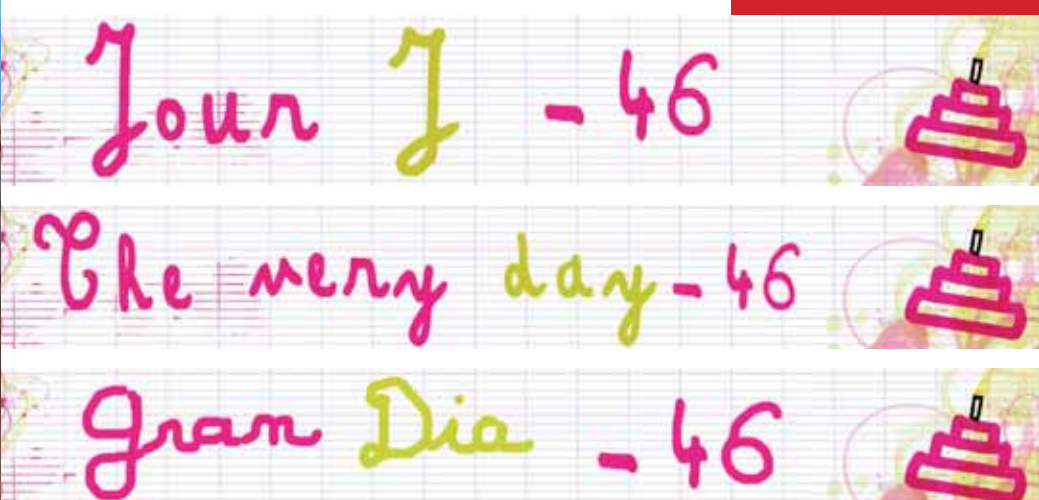 Jour J - 46
The very day - 46
gran Dia - 46